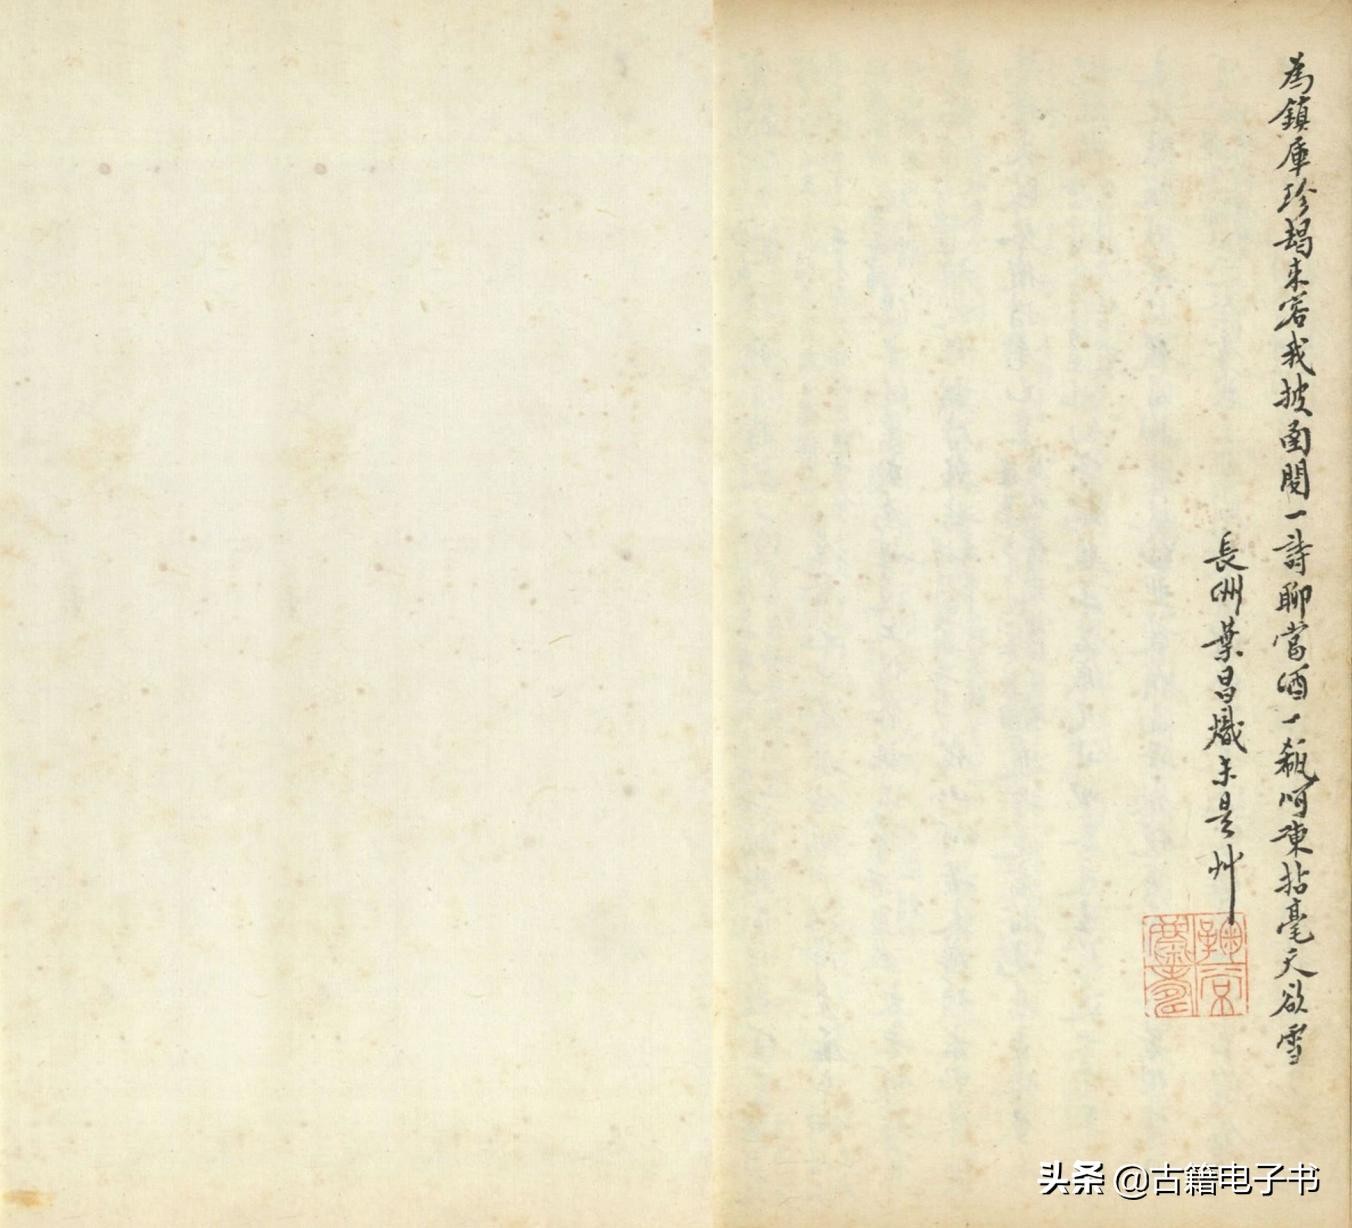 為鎮庫珍朅來容我披函閱一詩聊當酒一瓻呵凍拈毫天欲雪
長洲葉昌熾未是艸
鞠常
頭条 @古籍电子书